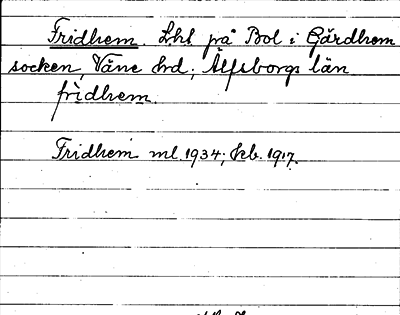 Fridhem. Lht på Bol i Gärdhem
socken, Väne hrd; Älfsborgs län
frìdhem.
Fridhem ml. 1934; kb. 1917.